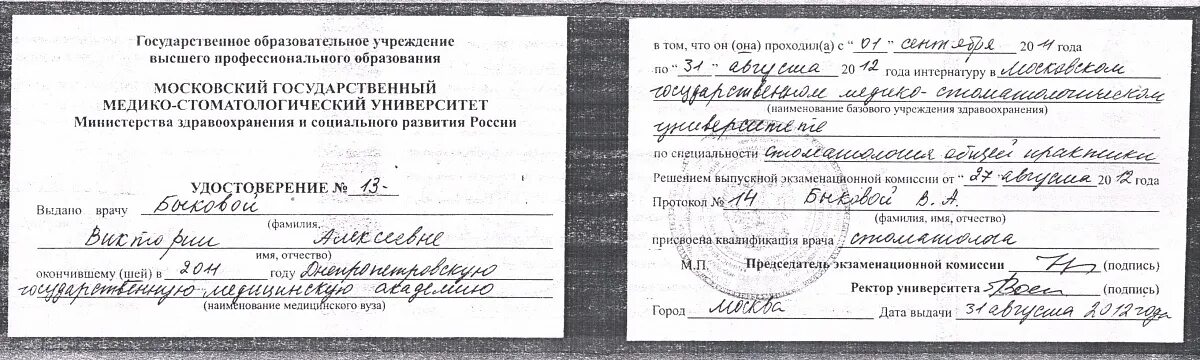 Государственное образовательное учреждение
высшего профессионального образования
МОСКОВСКИЙ ГОСУДАРСТВЕННЫЙ
МЕДИКО-СТОМАТОЛОГИЧЕСКИЙ УНИВЕРСИТЕТ
Министерства здравоохранения и социального развития России
УДОСТОВЕРЕНИЕ № 13-
Выдано врачу Быковой
(фамилия,
Виктории Алексеевне
имя, отчество)
окончившему (шей) в 2011 году Днепропетровскую
государственную медицинскую академию
(наименование медицинского вуза)
в том, что он (она) проходил(а) с "01" сентября 2011 года
по "31" августа 2012 года интернатуру в Московском
государственном медико-стоматологическом
(наименование базового учреждения здравоохранения)
университете
по специальности стоматология общей практики
Решением выпускной экзаменационной комиссии от "27" августа 2012 года
Протокол № 14 Быковой В. А.
(фамилия, имя, отчество)
присвоена квалификация врача стоматолога
М.П. Председатель экзаменационной комиссии (подпись)
Ректор университета (подпись)
Город Москва Дата выдачи 31 августа 2012 года